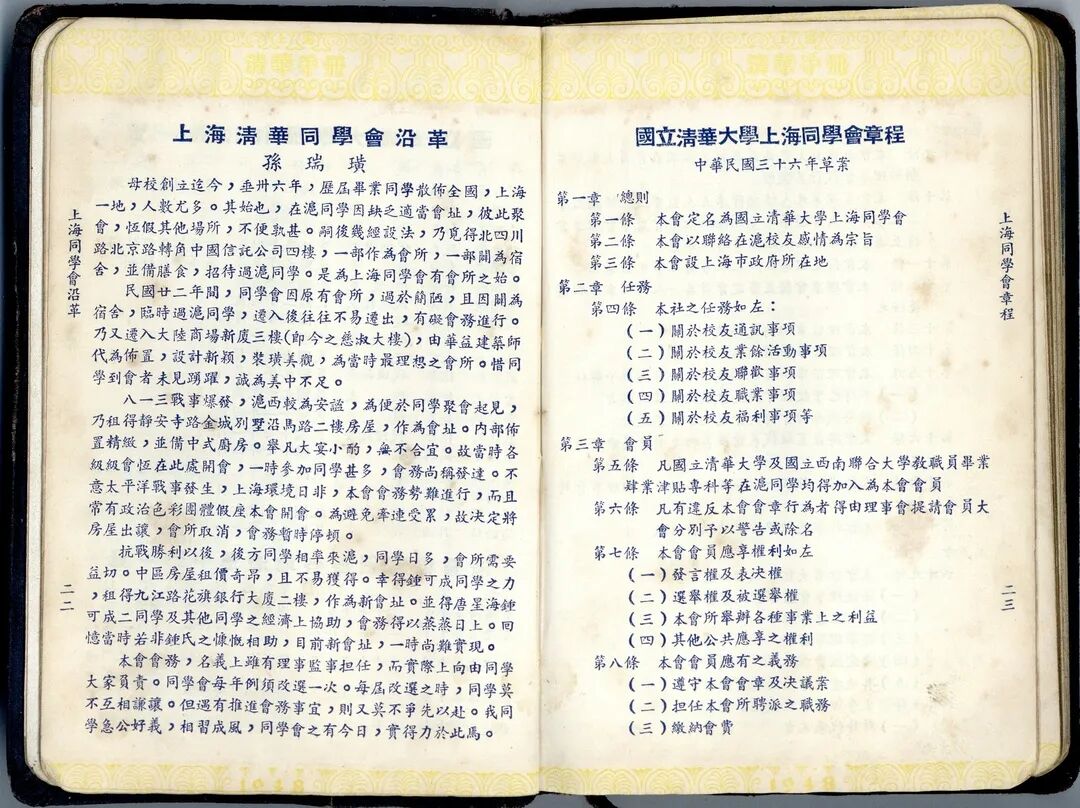 清華手冊
上海清華同學會沿革
孫瑞璜
母校創立迄今，垂卅六年，歷屆畢業同學散佈全國，上海
一地，人數尤多。其始也，在滬同學因缺乏適當會址，彼此聚
會，恆假其他場所，不便孰甚。嗣後幾經設法，乃覓得北四川
路北京路轉角中國信託公司四樓，一部作為會所，一部闢為宿
舍，並備膳食，招待過滬同學。是為上海同學會有會所之始。
民國廿二年間，同學會因原有會所，過於簡陋，且因闢為
宿舍，臨時過滬同學，遷入後往往不易遷出，有礙會務進行。
乃又遷入大陸商場新廈三樓(即今之慈淑大樓)，由華蓋建築師
代為佈置，設計新穎，裝璜美觀，為當時最理想之會所。惜同
學到會者未見踴躍，誠為美中不足。
八一三戰事爆發，滬西較為安謐，為便於同學聚會起見，
乃租得靜安寺路金城別墅沿馬路二樓房屋，作為會址。內部佈
置精緻，並備中式廚房。舉凡大宴小酌，無不合宜。故當時各
級級會恆在此處開會，一時參加同學甚多，會務尚稱發達。不
意太平洋戰事發生，上海環境日非，本會會務勢難進行，而且
常有政治色彩團體假座本會開會。為避免牽連受累，故決定將
房屋出讓，會所取消，會務暫時停頓。
抗戰勝利以後，後方同學相率來滬，同學日多，會所需要
益切。中區房屋租價奇昂，且不易獲得。幸得鍾可成同學之力
，租得九江路花旗銀行大廈二樓，作為新會址。並得唐星海鍾
可成二同學及其他同學之經濟上協助，會務得以蒸蒸日上。回
憶當時若非鍾氏之慷慨相助，目前新會址，一時尚難實現。
本會會務，名義上雖有理事監事担任，而實際上向由同學
大家負責。同學會每年例須改選一次。每屆改選之時，同學莫
不互相謙讓。但遇有推進會務事宜，則又莫不爭先以赴。我同
學急公好義，相習成風，同學會之有今日，實得力於此焉。
上海同學會沿革
二二
清華手冊
國立清華大學上海同學會章程
中華民國三十六年草案
第一章 總則
第一條 本會定名為國立清華大學上海同學會
第二條 本會以聯絡在滬校友感情為宗旨
第三條 本會設上海市政府所在地
第二章 任務
第四條 本社之任務如左：
(一)關於校友通訊事項
(二)關於校友業餘活動事項
(三)關於校友聯歡事項
(四)關於校友職業事項
(五)關於校友福利事項等
第三章 會員
第五條 凡國立清華大學及國立西南聯合大學教職員畢業
肄業津貼專科等在滬同學均得加入為本會會員
第六條 凡有違反本會會章行為者得由理事會提請會員大
會分別予以警告或除名
第七條 本會會員應享權利如左
(一)發言權及表决權
(二)選舉權及被選舉權
(三)本會所舉辦各種事業上之利益
(四)其他公共應享之權利
第八條 本會會員應有之義務
(一)遵守本會會章及决議案
(二)担任本會所聘派之職務
(三)繳納會費
上海同學會章程
二三